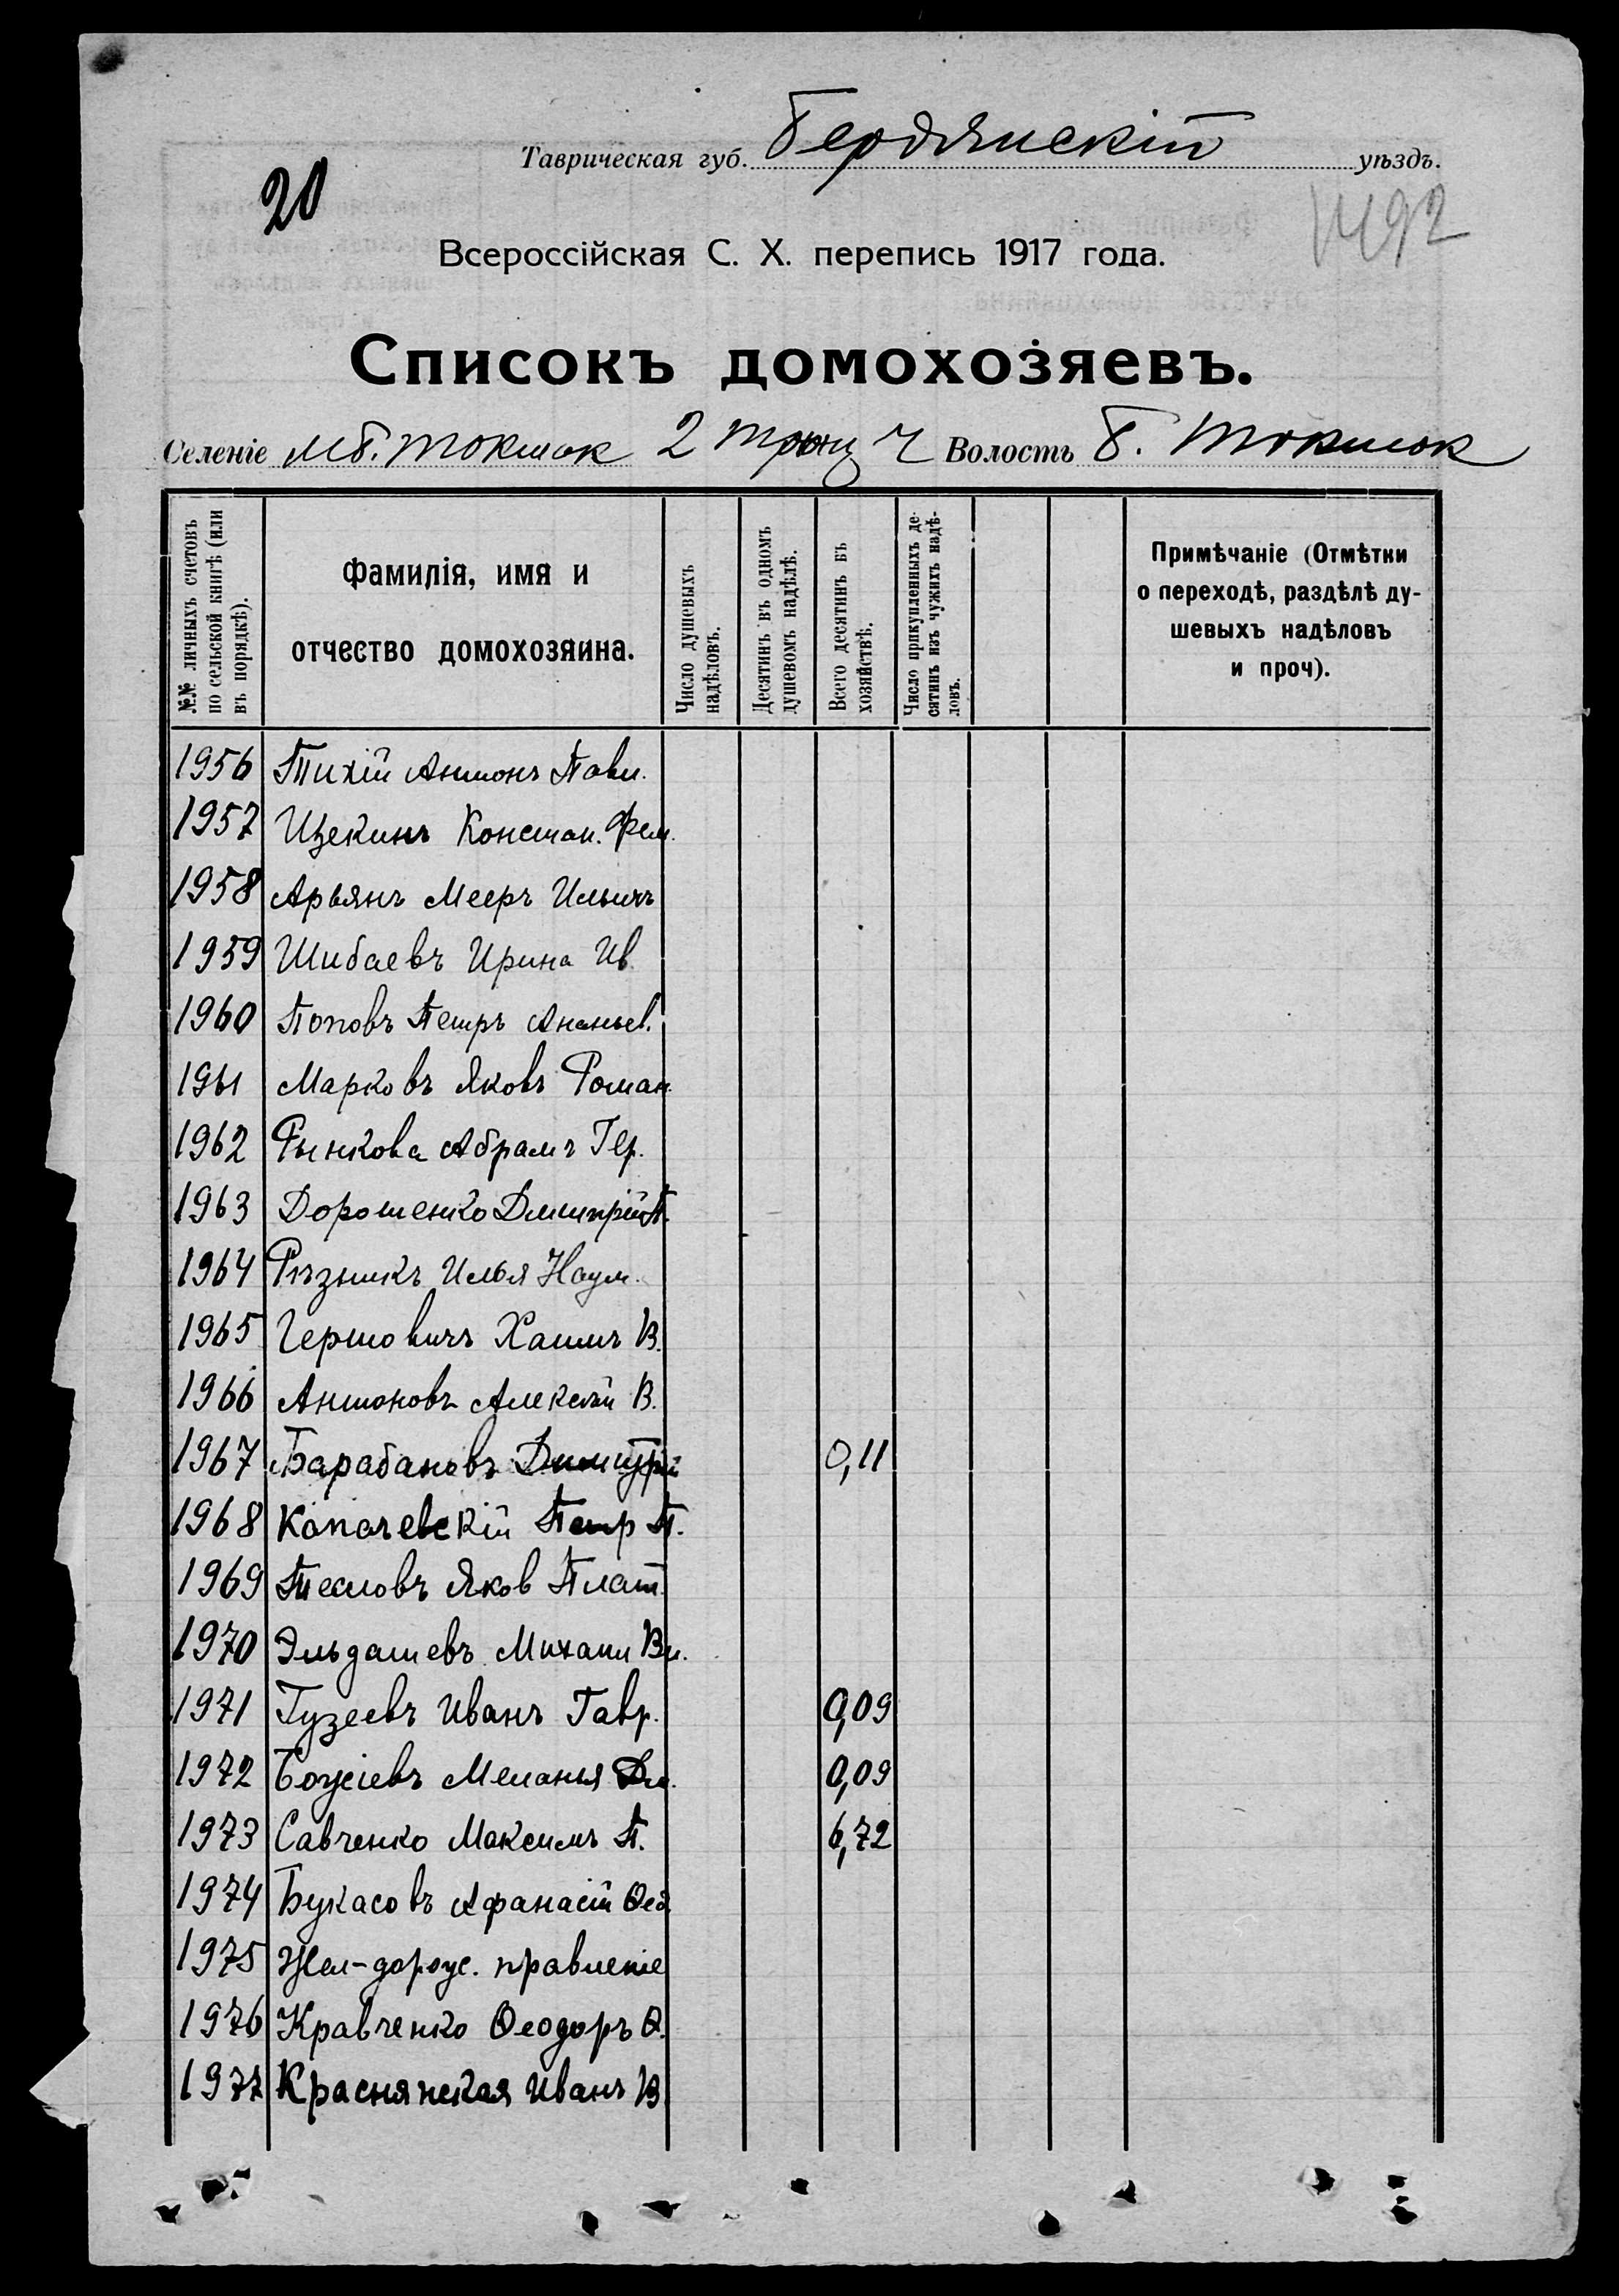 Таврическая губ. Бердянскій уѣздъ.
20
1492
Всероссійская С. Х. перепись 1917 года.
Списокъ домохозяевъ.
Селеніе Мб. Токмак 2 Ч Волость Б. Токмак
№№ личныхъ счетовъ по сельской книгѣ (или въ порядкѣ).
Фамилія, имя и отчество домохозяина.
Число душевыхъ надѣловъ.
Десятинъ въ одномъ душевомъ надѣлѣ.
Всего десятинъ въ хозяйствѣ.
Число прикупленныхъ десятинъ изъ чужихъ надѣловъ.
Примѣчаніе (Отмѣтки о переходѣ, раздѣлѣ душевыхъ надѣловъ и проч).
1956 Тихій Антонъ Павл.
1957 Щекинъ Констан. Фем.
1958 Арьянъ Мееръ Ильичъ
1959 Шибаевъ Ирина Ив
1960 Поповъ Петръ Ананьев.
1961 Марковъ Яковъ Роман.
1962 Рынкова Абрамъ Гер.
1963 Дорошенко Дмитрій П.
1964 Рѣзникъ Илья Наум.
1965 Гершовичъ Хаимъ В.
1966 Антоновъ Алексѣй В.
1967 Барабановъ Димитрій 0,11
1968 Капачевскій Петр П.
1969 Тесловъ Яков Плат.
1970 Эльдашевъ Михаил Вл.
1971 Гузеевъ Иванъ Гавр. 0,09
1972 Божіевъ Меланья 0,09
1973 Савченко Максимъ П. 6,72
1974 Букасовъ Афанасій Ѳед.
1975 Жел-дорож. правленіе
1976 Кравченко Ѳеодоръ Ѳ.
1977 Краснянская Иванъ В